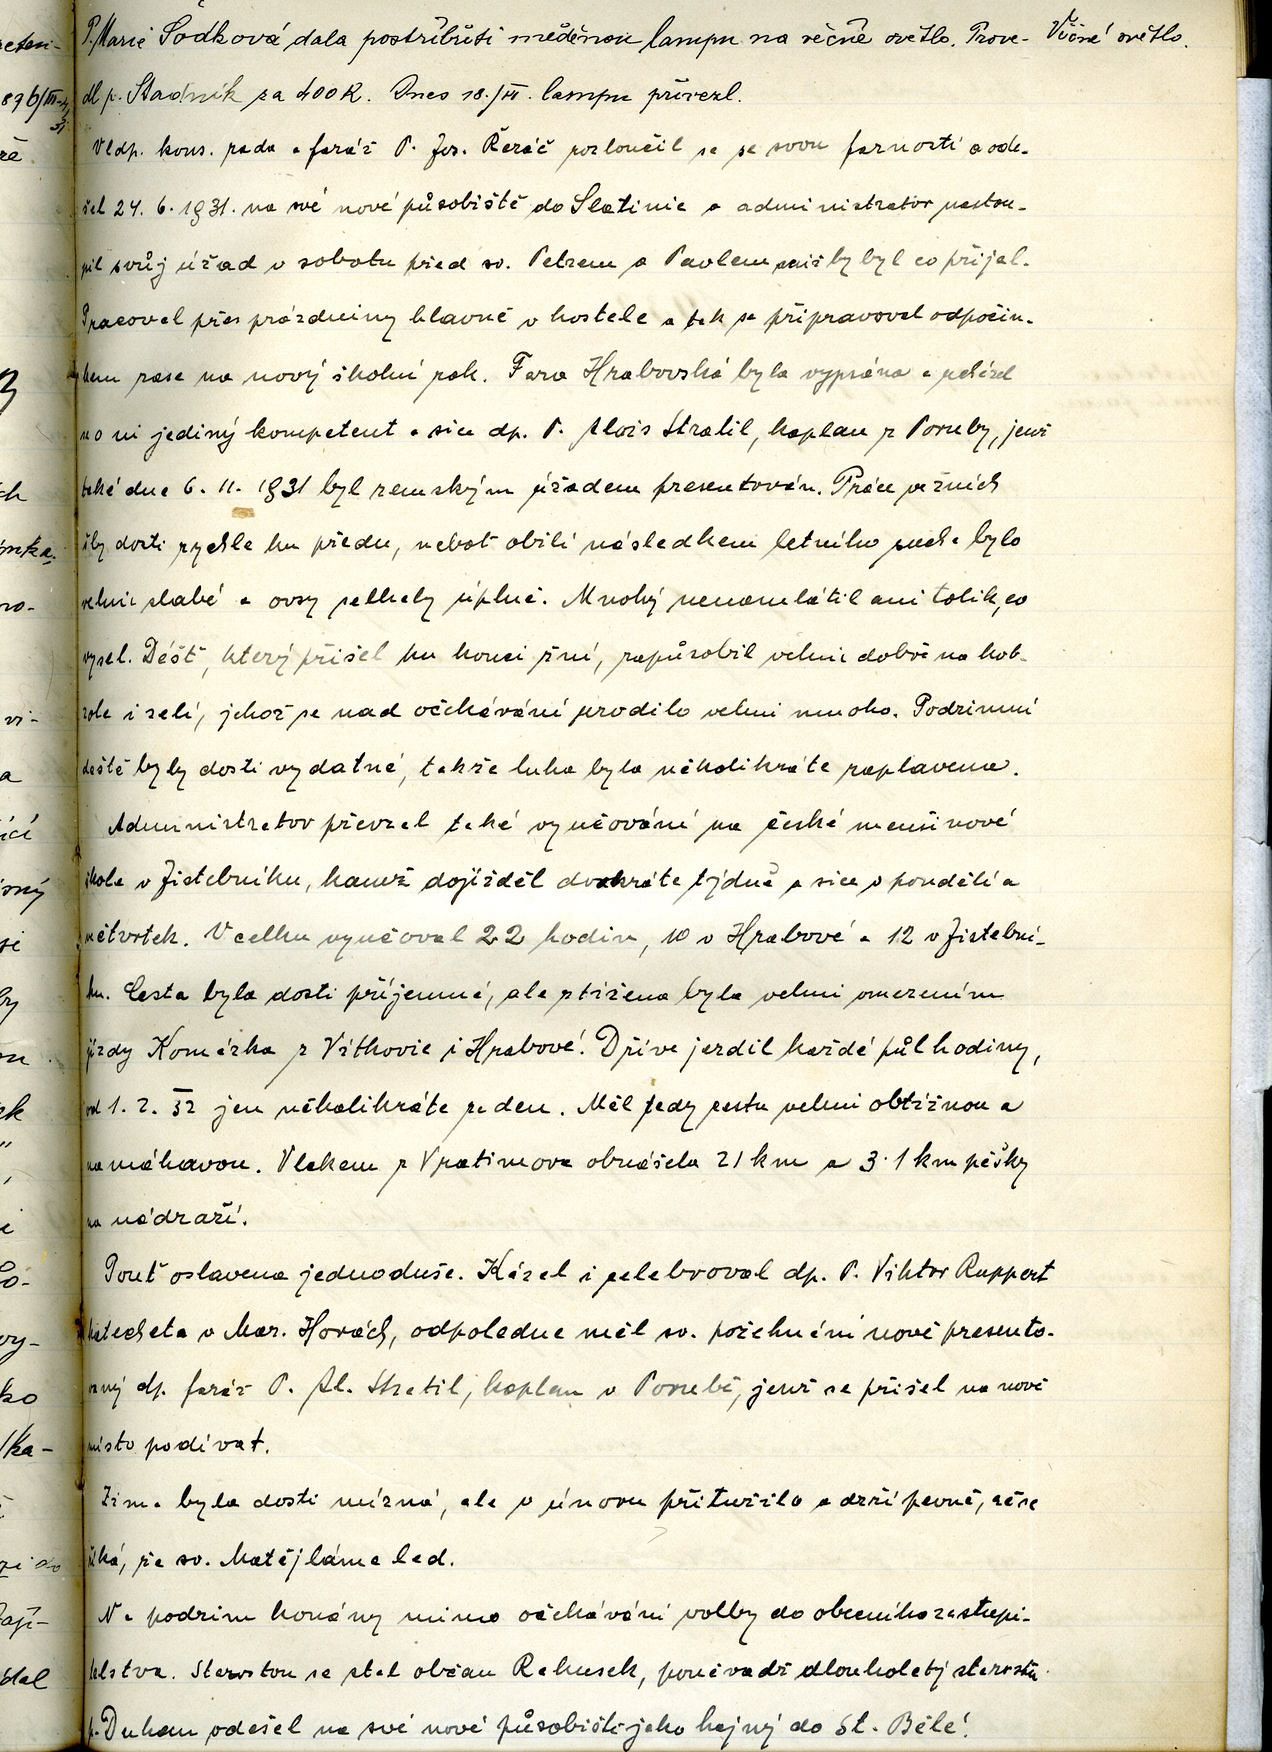 P. Marie Sodková dala postříbřiti měděnou lampu na věčné světlo. Prove- Věčné světlo.
dl p. Stadník za 400 K. Dnes 18./III. lampu přivezl.
Vldp. kons. rada a farář P. Jos. Řezáč rozloučil se se svou farností a ode-
šel 24. 6. 1931. na své nové působiště do Slatinic a administrator nastou-
pil svůj úřad v sobotu před sv. Petrem a Pavlem aniž by byl co přijal.
Pracoval přes prázdniny hlavně v kostele a tak se připravoval odpočin-
kem zase na nový školní rok. Fara Hrabovská byla vypsána a
na ni jediný kompetent a sice dp. P. Alois Stratil, kaplan z Poruby, jenž
také dne 6. 11. 1931 byl zemským úřadem presentován. Práce ve žních
šly dosti rychle ku předu, neboť obilí následkem letního sucha bylo
velmi slabé a ovsy selhaly úplně. Mnohý nenamlátil ani tolik, co
vysel. Déšť, který přišel ku konci žní, zapůsobil velmi dobře na kob-
zole i zelí, jehož se nad očekávání urodilo velmi mnoho. Podzimní
deště byly dosti vydatné, takže luka byla několikráte zaplavena.
Administrator převzal také vyučování na české menšinové
škole v Jistebníku, kamž dojížděl dvakráte týdně a sice v pondělí a
ve čtvrtek. V celku vyučoval 22 hodin, 10 v Hrabové a 12 v Jistební-
ku. Cesta byla dosti příjemná, ale ztížena byla velmi omezením
jízdy Komárka z Vítkovic i Hrabové. Dříve jezdil každé půl hodiny,
od 1. 2. 32 jen několikráte za den. Měl tedy cestu velmi obtížnou a
namáhavou. Vlakem z Vratimova obnášela 21 km a 3·1 km pěšky
na nádraží.
Pouť oslavena jednoduše. Kázal i celebroval dp. P. Viktor Ruppert
katecheta v Mar. Horách, odpoledne měl sv. požehnání nově presento-
vaný dp. farář P. Al. Stratil, kaplan v Porubě, jenž se přišel na nové
místo podívat.
Zima byla dosti mírná, ale v únoru přitužilo a drží pevně, ač se
říká, že sv. Matěj láme led.
Na podzim konány mimo očekávání volby do obecního zastupi-
telstva. Starostou se stal občan Rakusek, poněvadž dlouholetý starosta
p. Duham odešel na své nové působiště jako hajný do St. Bělé.